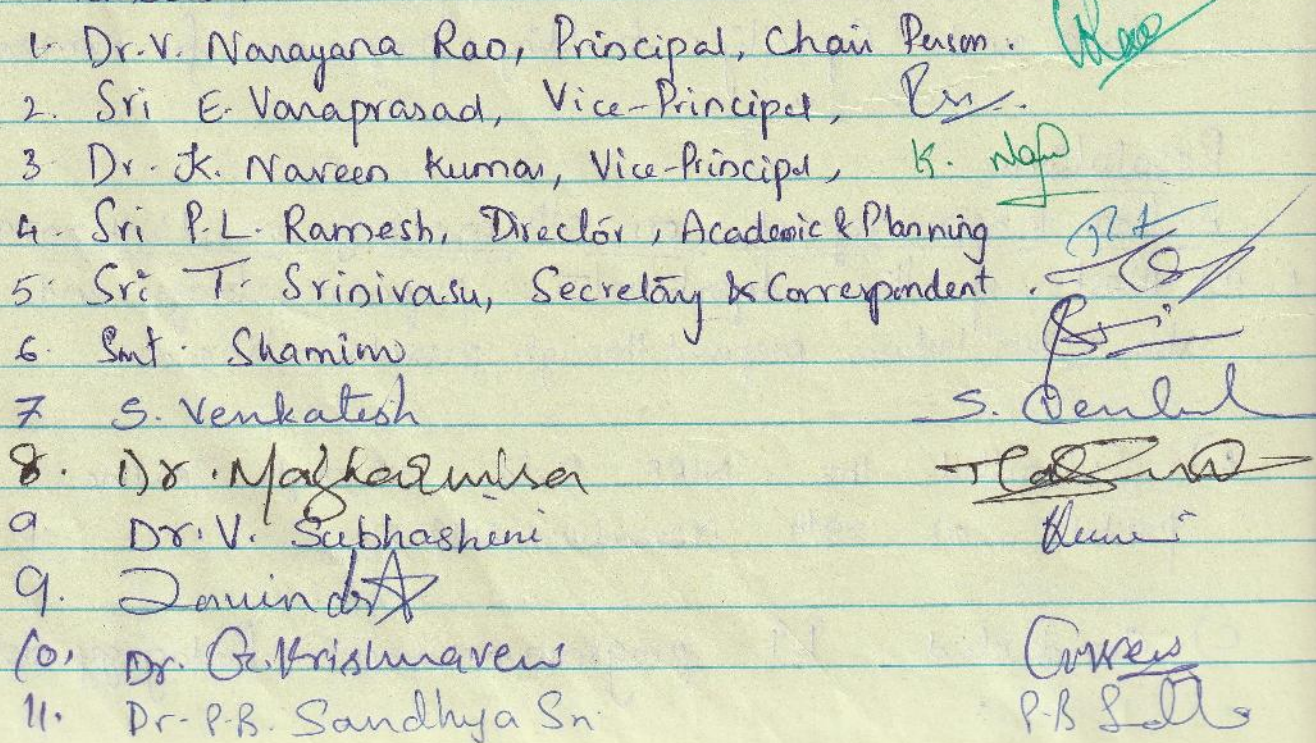 1. Dr. V. Narayana Rao, Principal, Chair Person.
2. Sri E. Varaprasad, Vice-Principal,
3 Dr. K. Naveen Kumar, Vice-Principal, K.
4. Sri P.L. Ramesh, Director, Academic & Planning
5. Sri T. Srinivasu, Secretary & Correspondent.
6. Smt. Shamim
7 S. Venkatesh S.
8. Dr.
9 Dr. V. Subhashini
9.
10. Dr. G. Krishnaveni
11. Dr. P.B. Sandhya Sri P.B